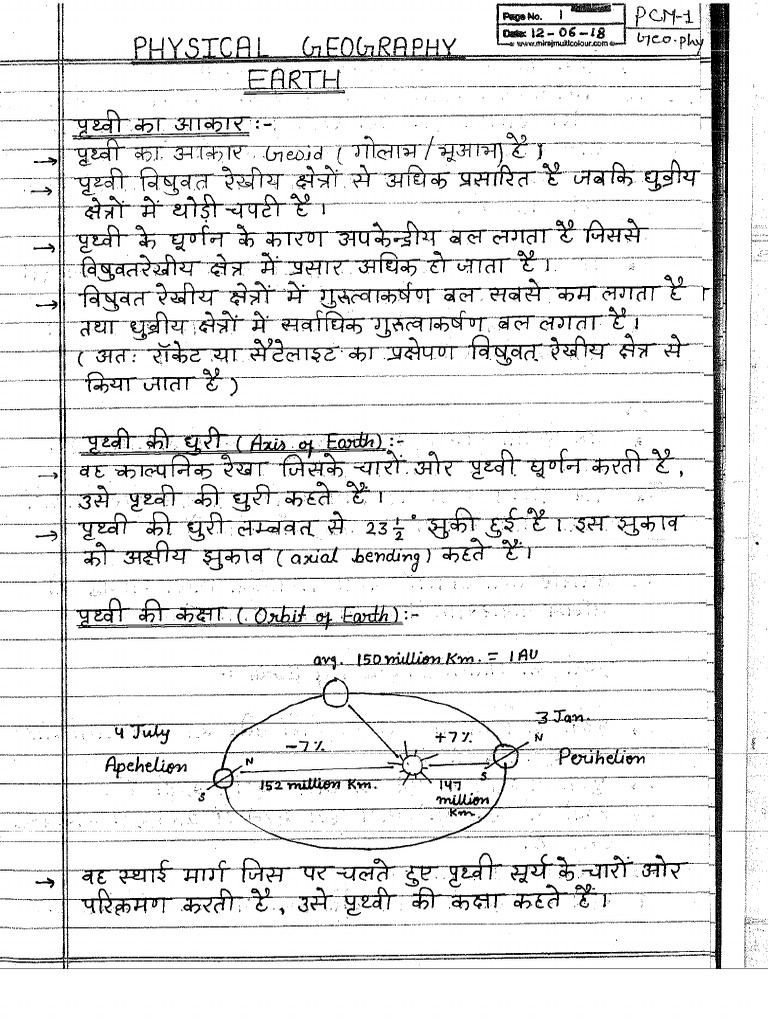 Page No. 1
Date: 12-06-18
www.mirajmulticolour.com
PCM-1
Geo.phy
PHYSICAL GEOGRAPHY
EARTH
पृथ्वी का आकार :-
→ पृथ्वी का आकार Geoid (गोलाभ/भूआभ) है।
→ पृथ्वी विषुवत रेखीय क्षेत्रों से अधिक प्रसारित है जबकि ध्रुवीय
क्षेत्रों में थोड़ी चपटी है।
→ पृथ्वी के घूर्णन के कारण अपकेन्द्रीय बल लगता है जिससे
विषुवतरेखीय क्षेत्र में प्रसार अधिक हो जाता है।
→ विषुवत रेखीय क्षेत्रों में गुरुत्वाकर्षण बल सबसे कम लगता है।
तथा ध्रुवीय क्षेत्रों में सर्वाधिक गुरुत्वाकर्षण बल लगता है।
(अतः रॉकेट या सैटेलाइट का प्रक्षेपण विषुवत् रेखीय क्षेत्र से
किया जाता है)
पृथ्वी की धुरी (Axis of Earth) :-
→ वह काल्पनिक रेखा जिसके चारों ओर पृथ्वी घूर्णन करती है,
उसे पृथ्वी की धुरी कहते हैं।
→ पृथ्वी की धुरी लम्बवत् से 23½° झुकी हुई है। इस झुकाव
को अक्षीय झुकाव (axial bending) कहते हैं।
पृथ्वी की कक्षा (Orbit of Earth) :-
avg. 150 million Km. = 1 AU
4 July
Apehelion
-7%
152 million Km.
N
S
+7%
147
million
Km.
N
S
3 Jan.
Perihelion
→ वह स्थाई मार्ग जिस पर चलते हुए पृथ्वी सूर्य के चारों ओर
परिक्रमण करती है, उसे पृथ्वी की कक्षा कहते हैं।